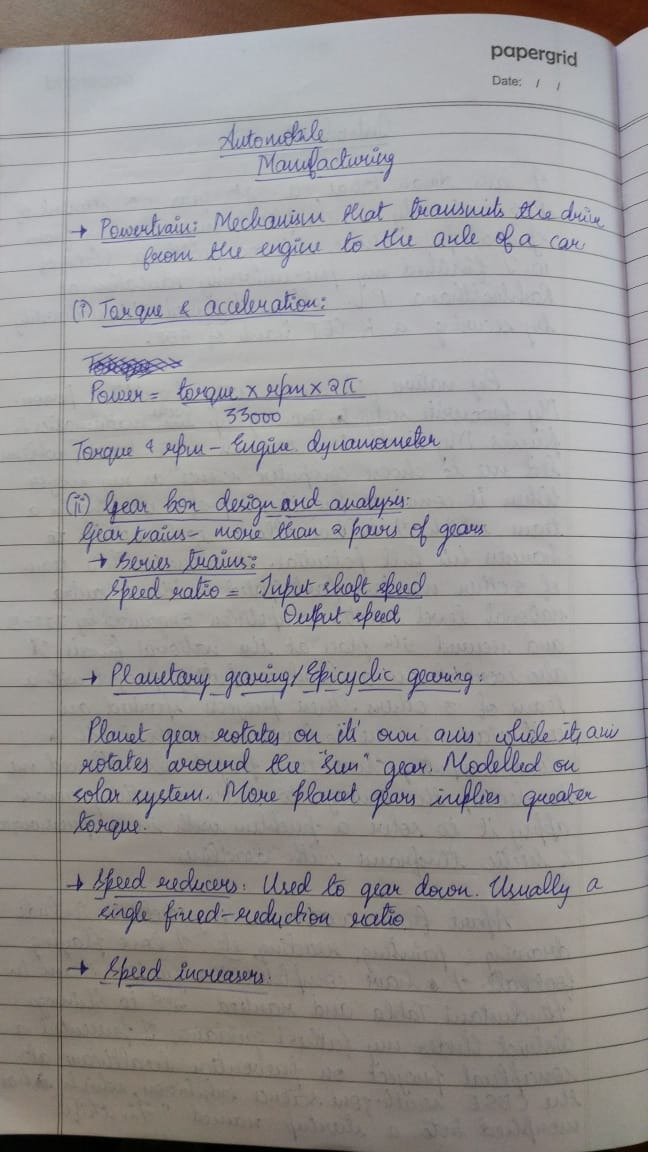 papergrid
Date: / /
Automobile
Manufacturing
→ Powertrain: Mechanism that transmits the drive
from the engine to the axle of a car
(i) Torque & acceleration:
Power = torque x rpm x 2π
33000
Torque & rpm - Engine dynamometer
(ii) Gear box design and analysis:
Gear trains - more than 2 pairs of gears
→ Series trains:
Speed ratio = Input shaft speed
Output speed
→ Planetary gearing/Epicyclic gearing:
Planet gear rotates on its' own axis while its axis
rotates around the "sun" gear. Modelled on
solar system. More planet gears implies greater
torque.
→ Speed reducers: Used to gear down. Usually a
single fixed-reduction ratio
→ Speed increasers: